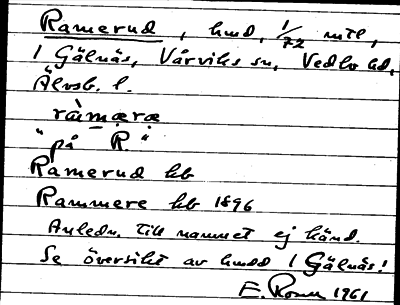 Ramerud, hmd, 1/72 mtl,
1 Gälnäs, Vårviks sn, Vedbo hd,
Älvsb. l.
ràmærə
"på R."
Ramerud kb
Rammere kb 1896
Anledn. till namnet ej känd.
Se översikt av hmdd 1 Gälnäs!
E. 1961